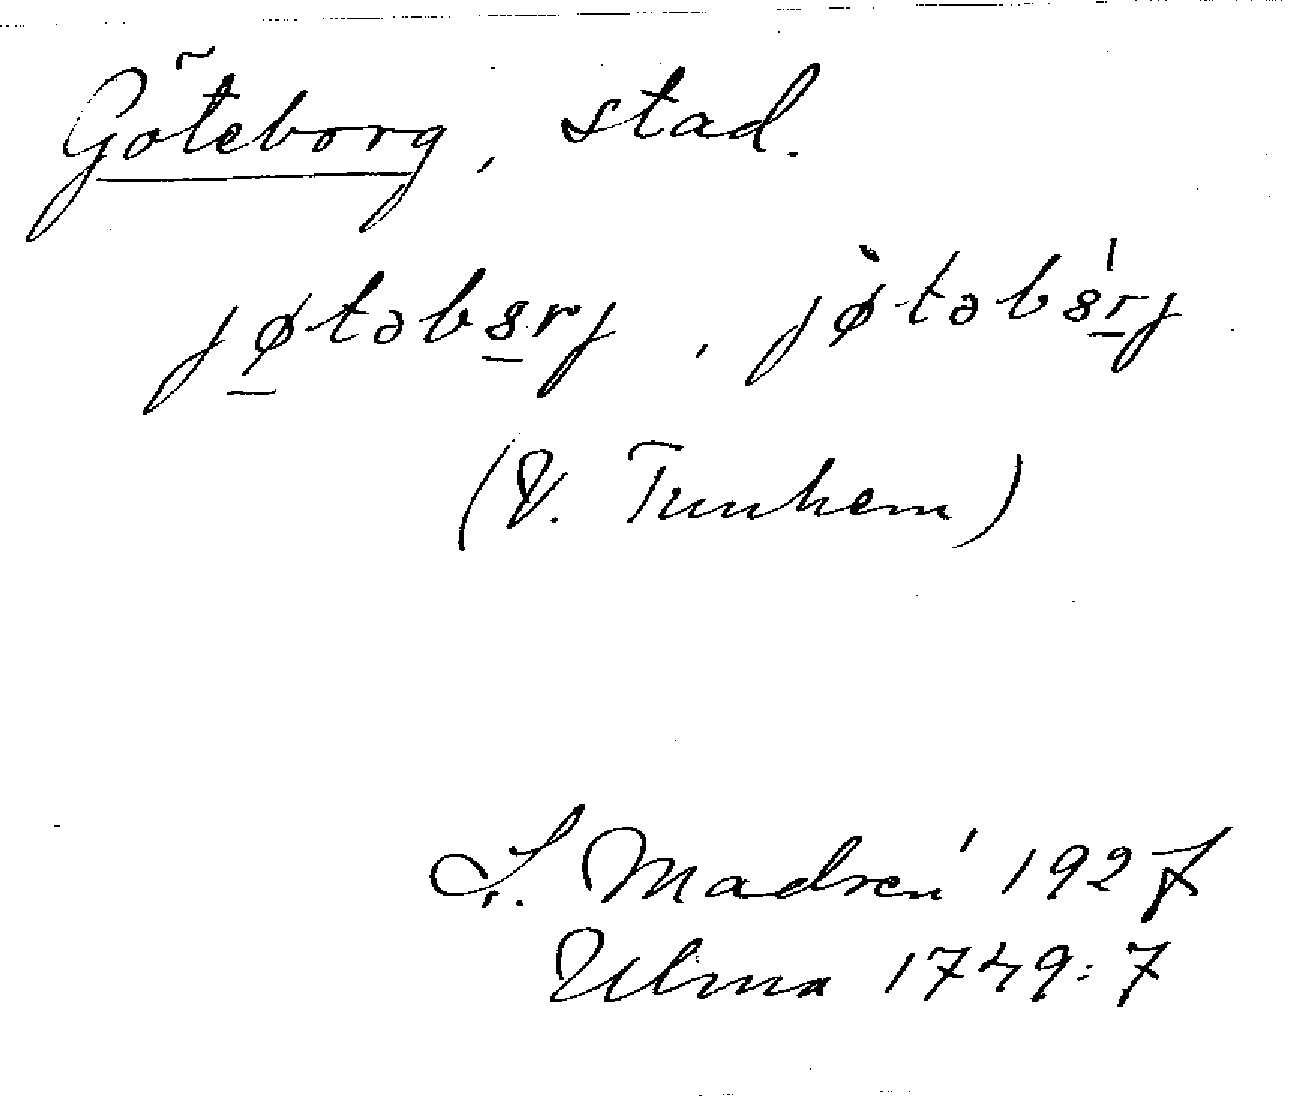 Göteborg, stad.
jøtəbȣrj, jø̀təbȣ́rj
(V. Tunhem)
L. Madsén 1927
Ulma 1749:7